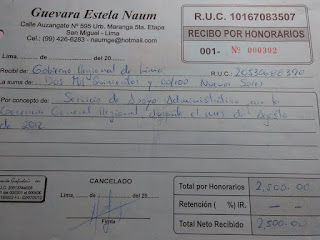 Guevara Estela Naum
Calle Auzangate Nº 595 Urb. Maranga 5ta. Etapa
San Miguel - Lima
Cel.: (99) 426-6283 - naumge@hotmail.com
R.U.C. 10167083507
RECIBO POR HONORARIOS
001- Nº 000302
Lima, de del 20
Recibí de: Gobierno Regional de Lima R.U.C.: 20530688390
La suma de: Dos Mil Quinientos y 00/100 Nuevos Soles
Por concepto de: Servicio de Apoyo Administrativo para la
Gerencia General Regional, durante el mes de Agosto
de 2012
CANCELADO
Lima, de del 20
Total por Honorarios 2,500.00
Retención ( %) IR.
Total Neto Recibido 2,500.00